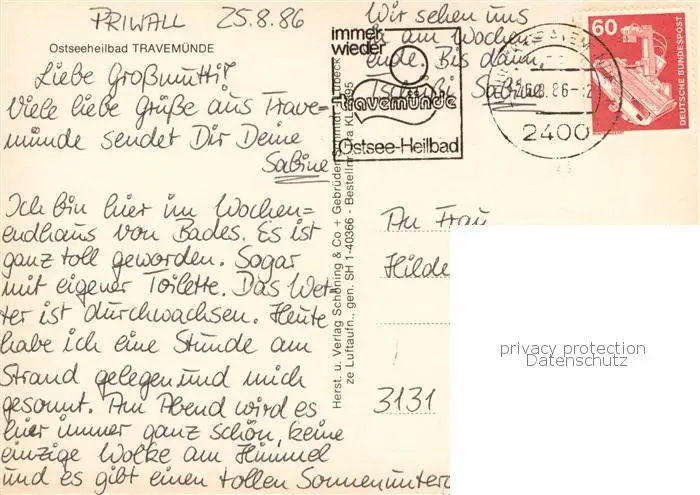 PRIWALL 25.8.86
Ostseeheilbad TRAVEMÜNDE
Liebe Großmutti!
Viele liebe Grüße aus Trave=
münde sendet Dir Deine
Sabine
Ich bin hier im Wochen=
endhaus von Bades. Es ist
ganz toll geworden. Sogar
mit eigener Toilette. Das Wet=
ter ist durchwachsen. Heute
habe ich eine Stunde am
Strand gelegen und mich
gesonnt. Am Abend wird es
hier immer ganz schön, keine
einzige Wolke am Himmel
und es gibt einen tollen Sonnenunter
Wir sehen uns
am Wochen=
ende. Bis dann,
Tschüßi Sabine
immer
wieder
travemünde
Ostsee-Heilbad
86
2400
60
DEUTSCHE BUNDESPOST
Herst. u. Verlag Schöning & Co + Gebrüder Schmidt, Lübeck
ze Luftaufn., gen. SH 1-40366 - Bestellnr.
An Frau
Hilde
3131
privacy protection
Datenschutz